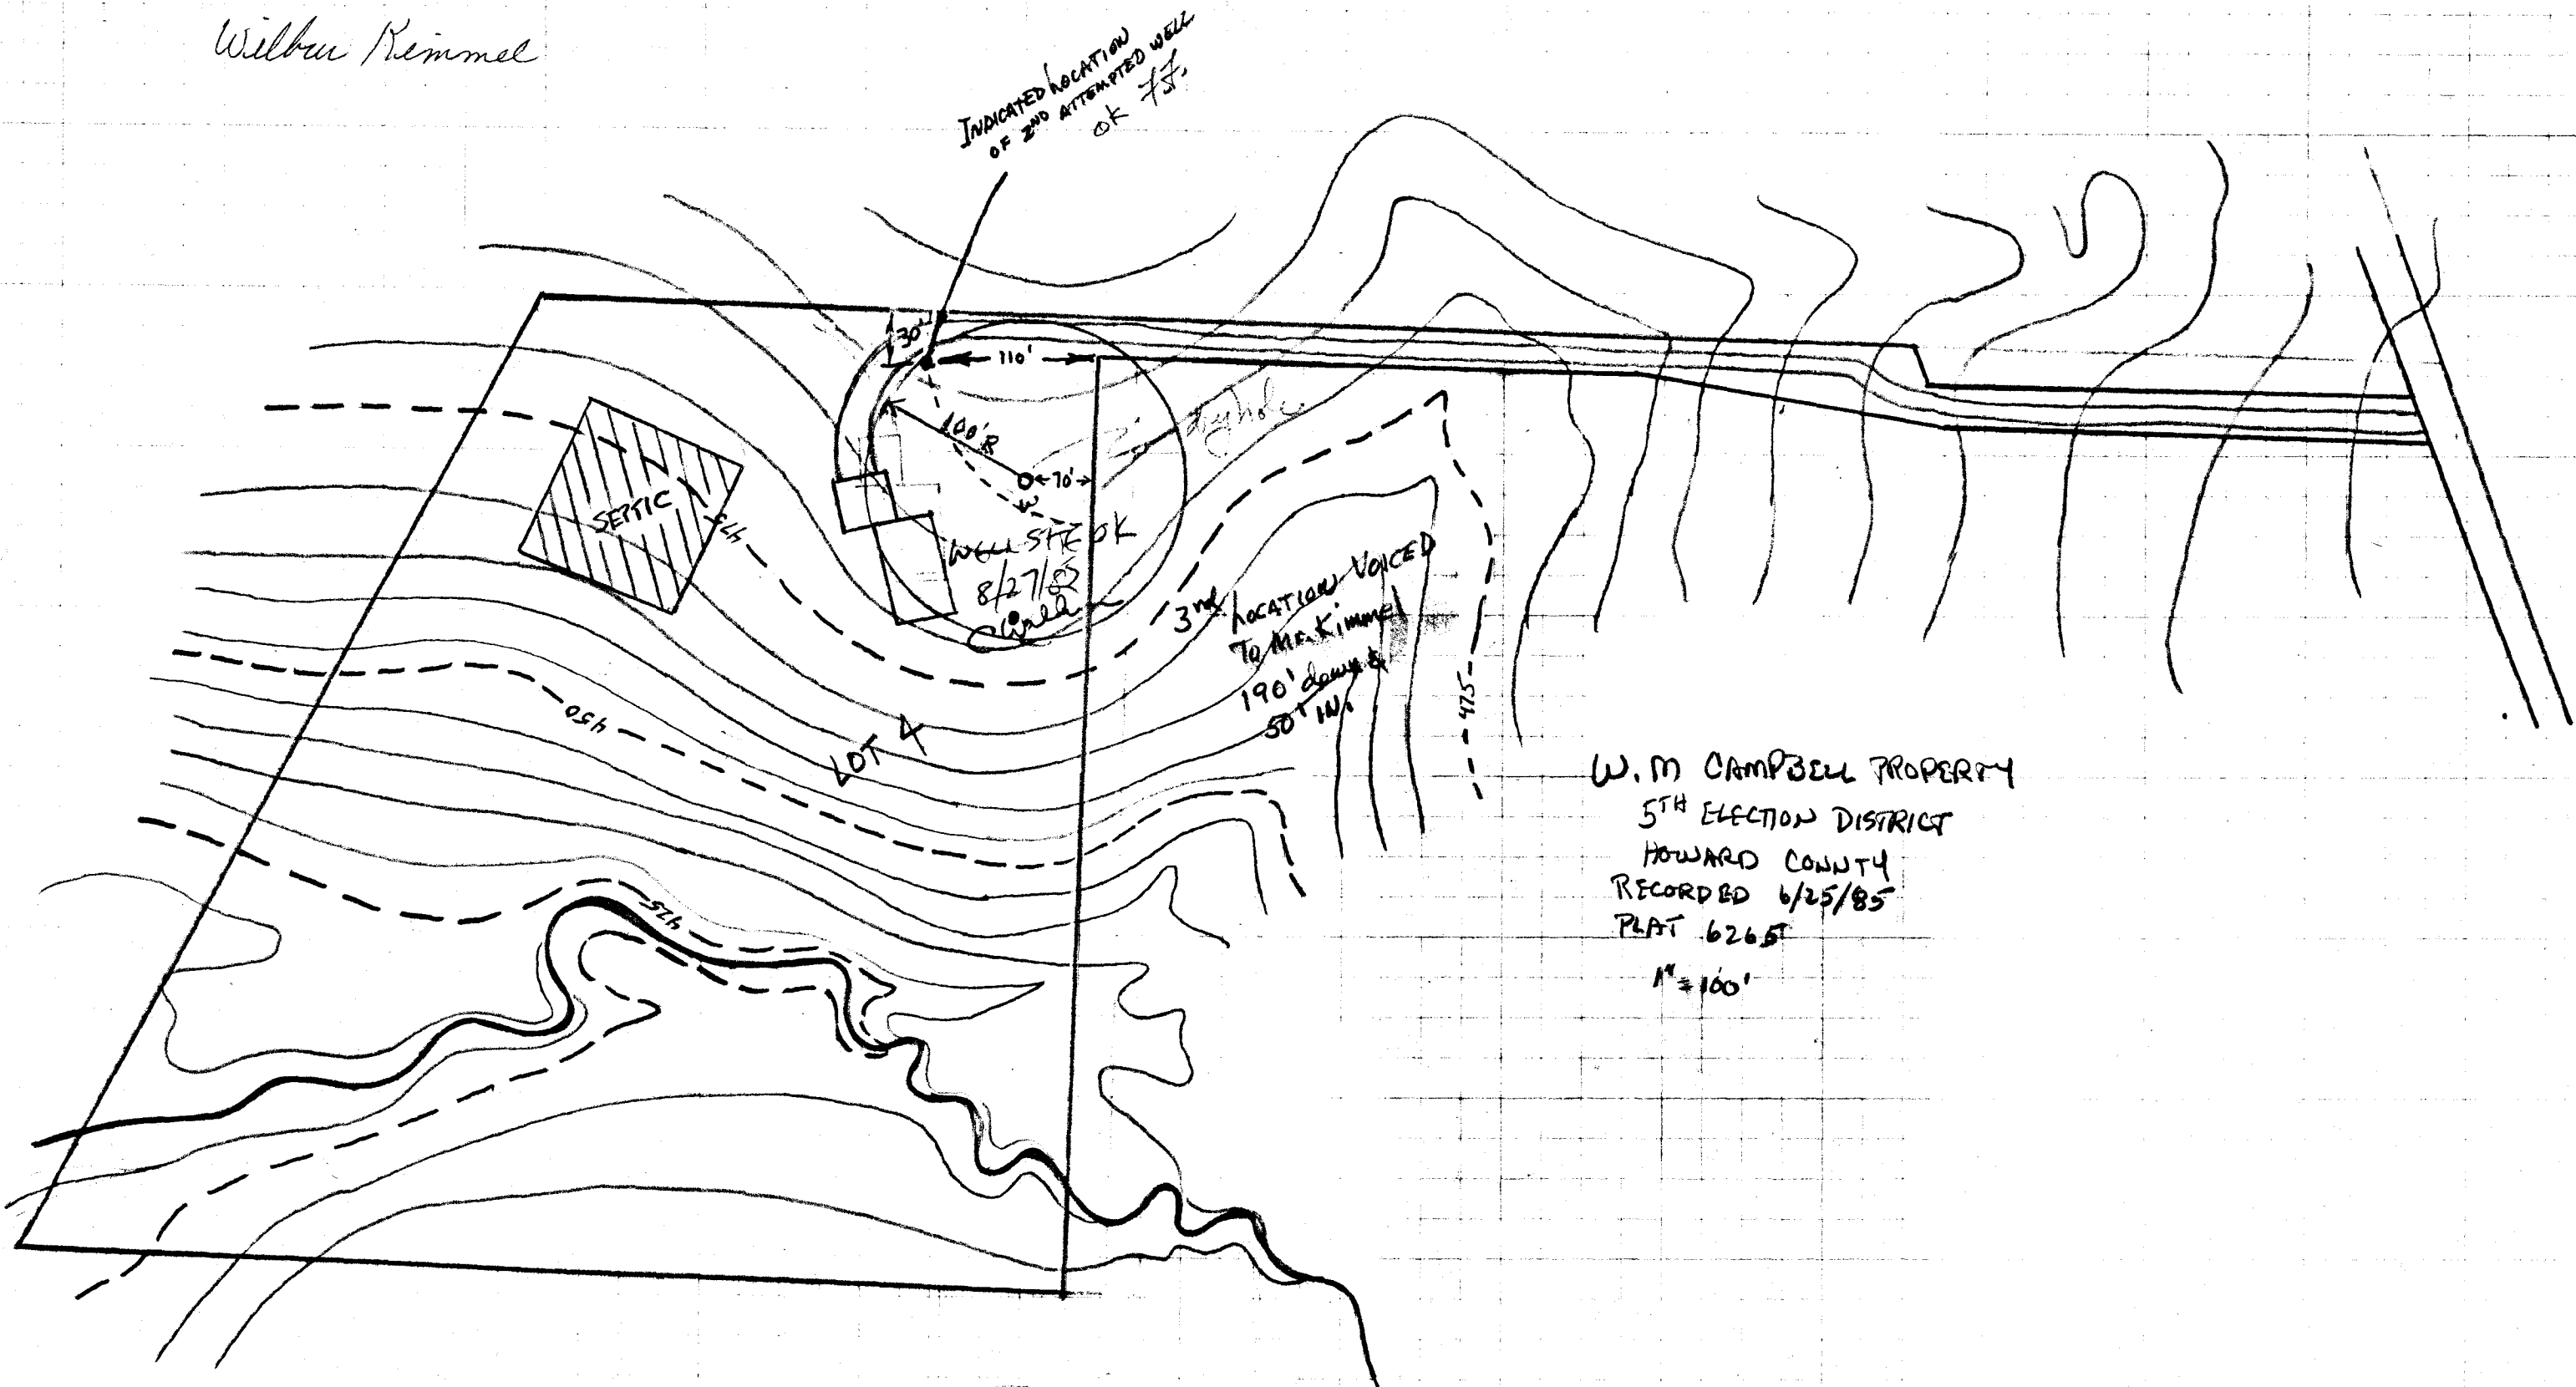 Wilbur Kimmel
INDICATED LOCATION
OF 2ND ATTEMPTED WELL
OK
30'
110'
100'R
70'
W
dryhole
WELL SITE OK
8/27/85
SEPTIC
475
3rd LOCATION VOICED
To Mr. Kimmel
190' down &
50' IN.
475
450
LOT 4
425
W.M CAMPBELL PROPERTY
5TH ELECTION DISTRICT
HOWARD COUNTY
RECORDED 6/25/85
PLAT 6265
1" = 100'